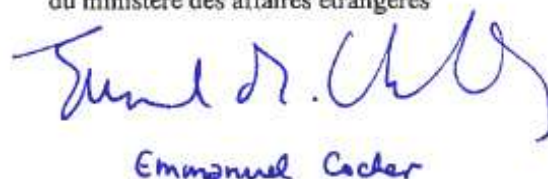 du ministère des affaires étrangères
Emmanuel Cocher